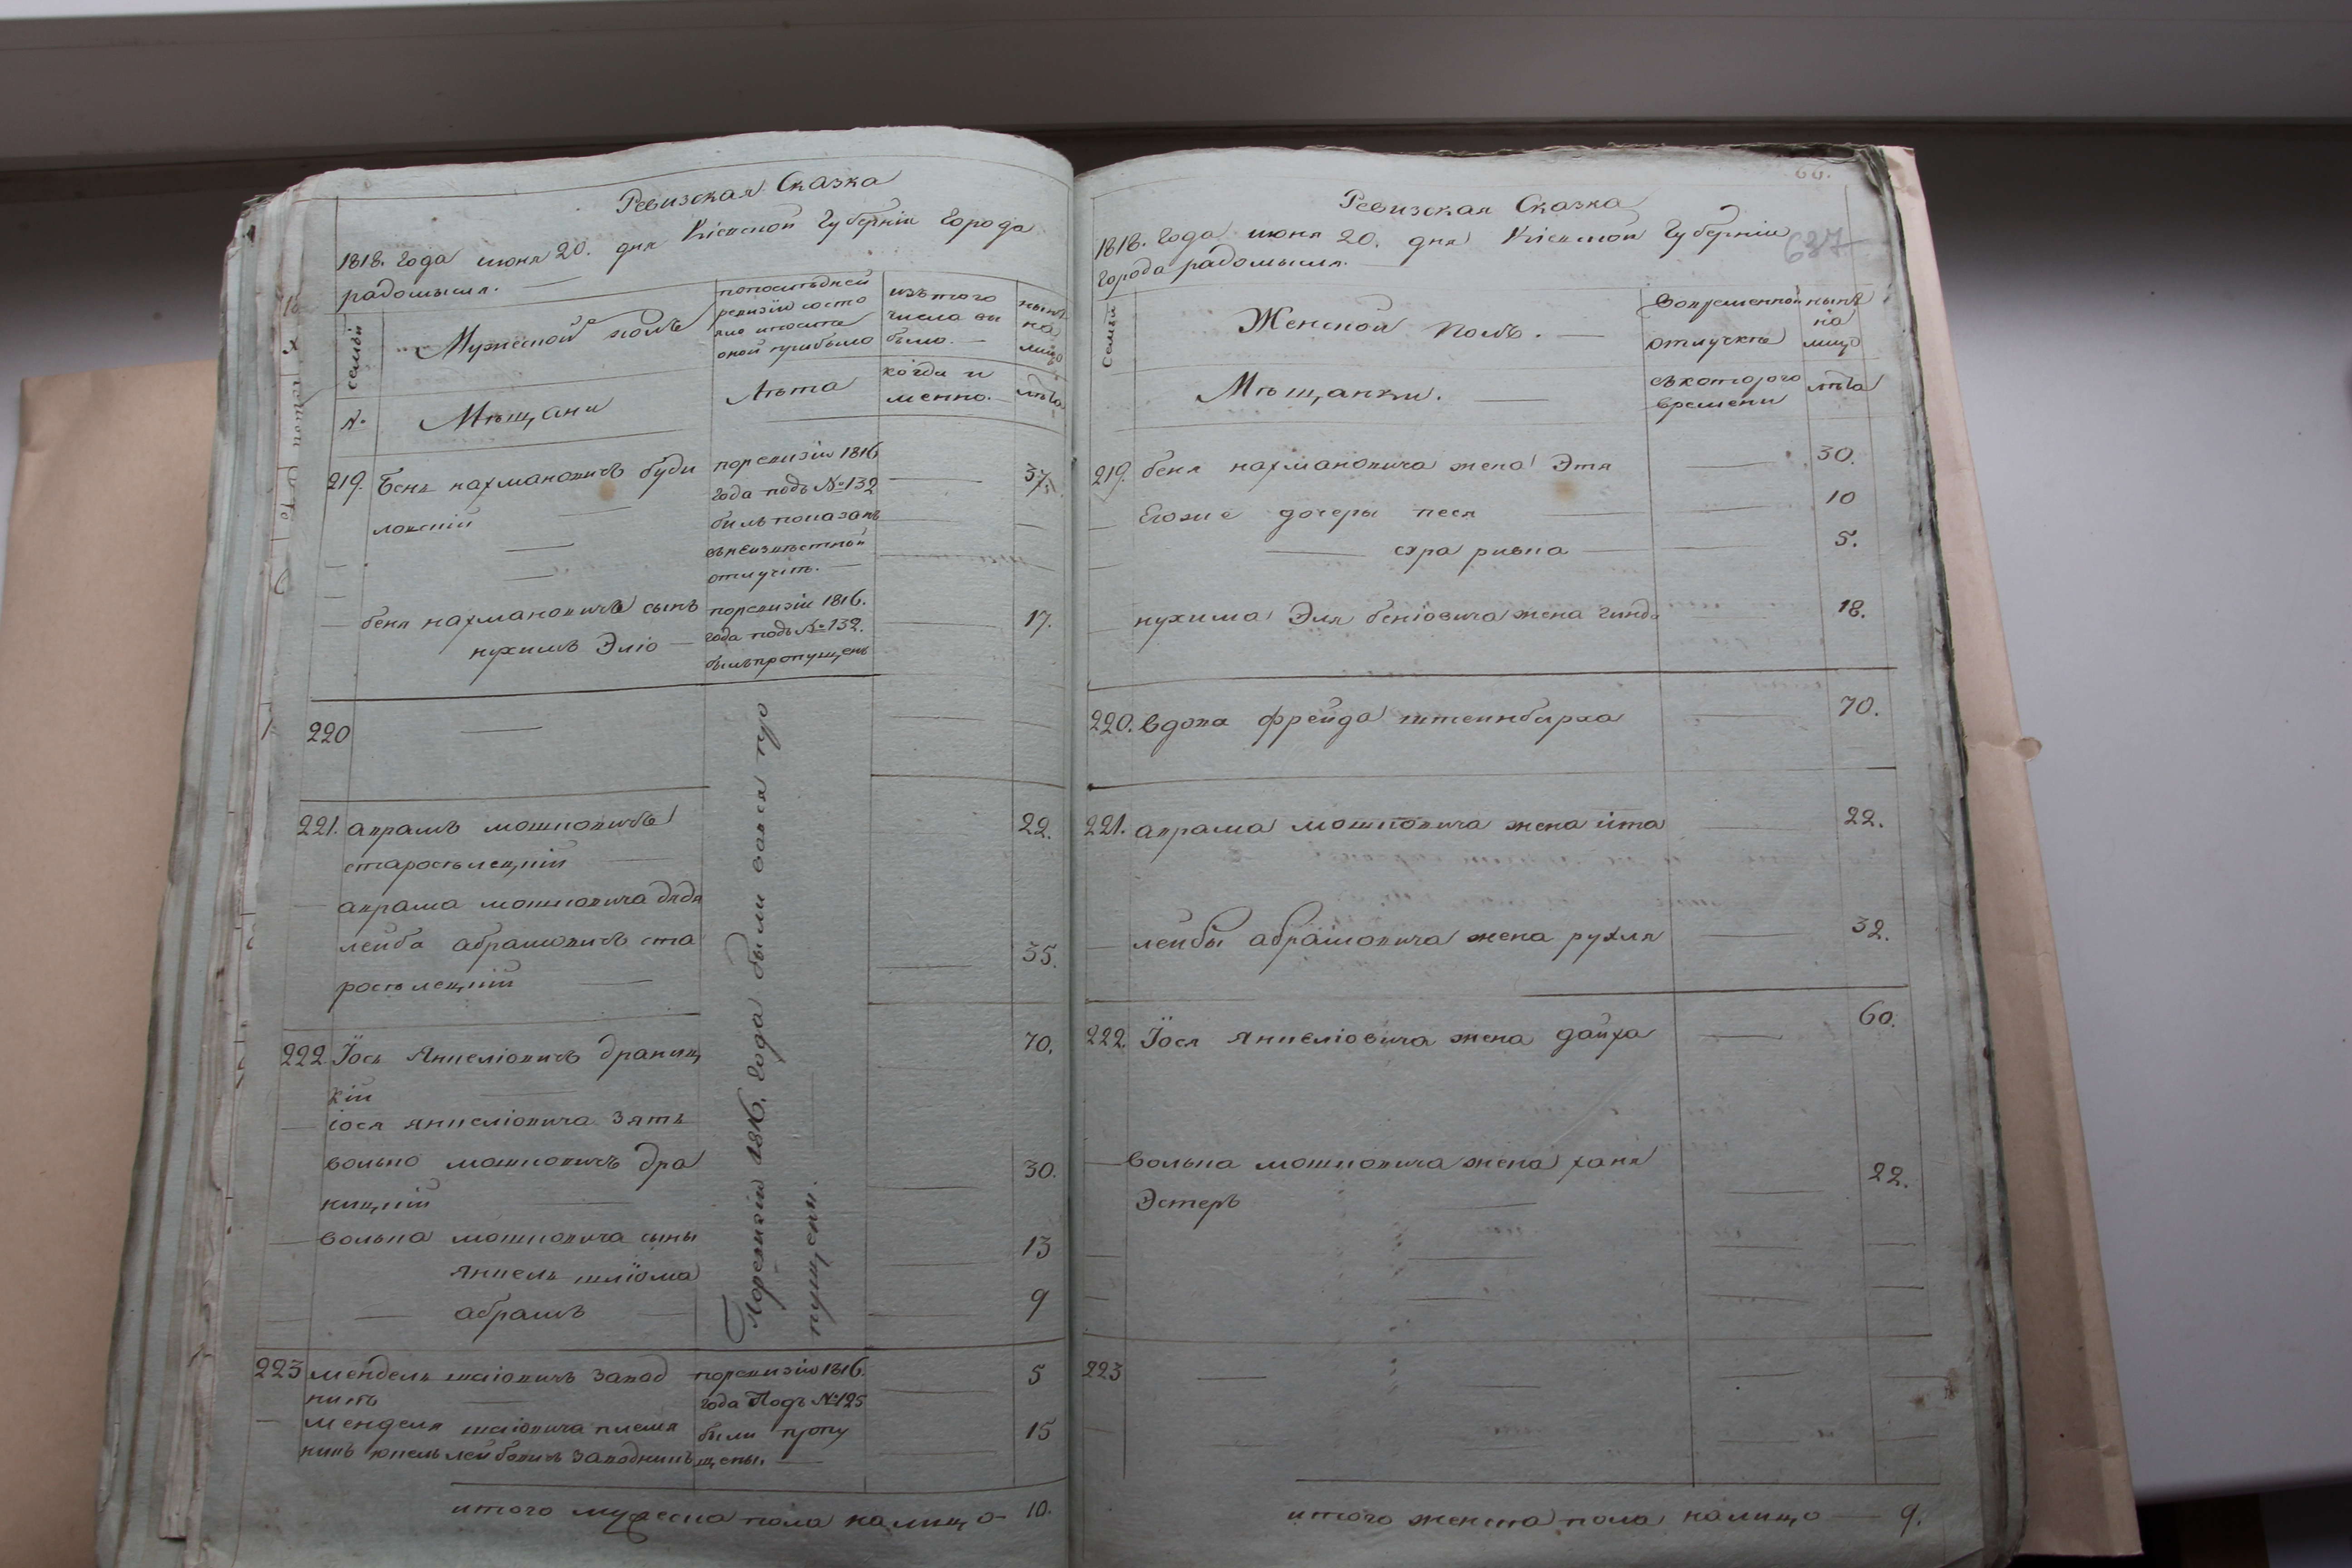 Ревизская Сказка
1818. Года июня 20. дня Кіевской Губерніи Города
радомысля.
семьи
Мужеской полъ
попослѣдней
ревизіи состо
яло ипосле
оной прибыло
изътого
числа вы
было.
нынѣ
на
лицо
№
Мѣщани
Лѣта
когда и
менно.
лѣта
219. Беня нахмановичъ буди
ловскій
поревизіи 1816
года подъ №132
билъ показанъ
въ неизвѣстной
отлучкѣ.
37.
беня нахмановичъ сынъ
нухимъ Эліо
поревизіи 1816.
года подъ №132.
былъ пропущенъ
17.
220
Поревизіи 1816. Года были вовся про
пущени.
221. аврамъ мошковичъ
старосѣлецкій
22.
аврама мошковича дядя
лейба абрамовичъ ста
росѣлецкій
35.
222 Іось Янкеліовичъ браниц
кій
70.
іося янкеліовича зять
волько мошковичъ бра
ницкій
30.
волька мошковича сыны
янкель шліома
13
абрамъ
9
223 мендель шаіовичъ завод
никъ
поревизіи 1816.
года Подъ №125
были пропу
щены.
5
менделя шаіовича племя
никъ юкель лейбовичъ заводникъ
15
итого мужеска пола налицо 10.
66.
Ревизская Сказка
637
1818. Года июня 20. дня Кіевской Губерніи
Города радомысля.
Семьи
Женской полъ.
Вовременной
отлучке
нынѣ
на
лицо
Мѣщанки.
съкоторого
времени
лѣта
219. беня нахмановича жена Этя 30.
Егоже дочеры песя 10
сура ривка 5.
нухима Эля беніовича жена гинда 18.
220. вдова фрейда штеинбарха 70.
221. аврама мошковича жена ита 22.
лейбы абрамовича жена рухля 32.
222. Іося янкеліовича жена дайха 60.
волька мошковича жена ханя
Эстеръ
22.
223
итого женска пола налицо 9.